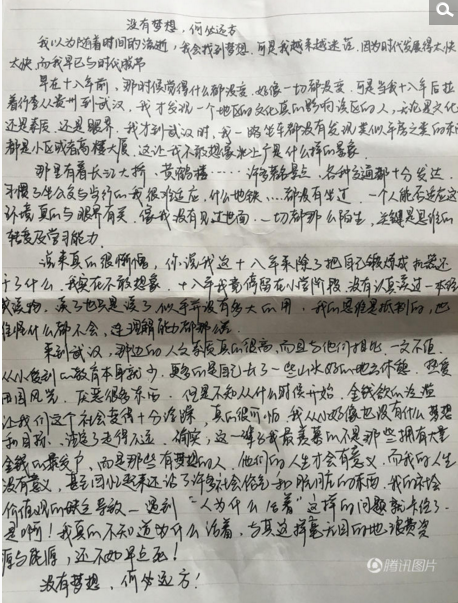 没有梦想,何必远方
我以为随着时间的流逝,我会找到梦想,可是我越来越迷茫,因为时代发展得太快
太快,而我早已与时代脱节
早在十八年前,那时候觉得什么都没变,好像一切都没变,可是当我十八年后拉
着行李从贵州到武汉,我才发现一个地区的文化真的影响该区的人,无论是文化
还是素质,还是眼界,我才到武汉时,我一路坐车都没有发现类似平房之类的东西
都是小区或者高楼大厦,这让我不敢想象北上广是什么样的景象
那里有着长江大桥,黄鹤楼……许多著名景点,各种交通都十分发达
习惯了坐公交与步行的我很难适应,什么地铁…都没有坐过,一个人能否适应这
环境真的与眼界有关,像我没有见过世面,一切都那么陌生,关键是思维的
转变及学习能力.
说来真的很惭愧,你说我这十八年来除了把自己锻炼成机器还
干了什么,我实在不敢想象,十八年我竟停留在小学阶段,没有认真读过一本经
典读物,读了也只是读了似乎并没有多大的用,我的思维是抵制的,也
难怪什么都不会,连理解能力都那么
来到武汉,那边的人会素质真的很高,而且与他们相比,一文不值.
从小受到的教育本身就少,更多的是自己去了一些山水好的地方休憩,热爱
田园风光,厌恶很多东西,但是不知从什么时候开始,金钱欲的泛滥
让我们这个社会变得十分浮躁,真的很可怕,我从小好像也没有什么梦想
和目标,注定了走得不远,偷笑,这一辈子我最羡慕的不是那些拥有大量
金钱的暴发户,而是那些有梦想的人,他们的人生才会有意义,而我的人生
没有意义,甚至回忆起来还沾了许多社会俗气和肮脏的东西,我的坏
价值观的缺乏导致一遇到"人为什么活着"这样的问题就卡住了.
是啊!我真的不知道为什么活着,与其这样毫无目的地浪费资
源与能源,还不如早点死!
没有梦想,何必远方!
腾讯图片